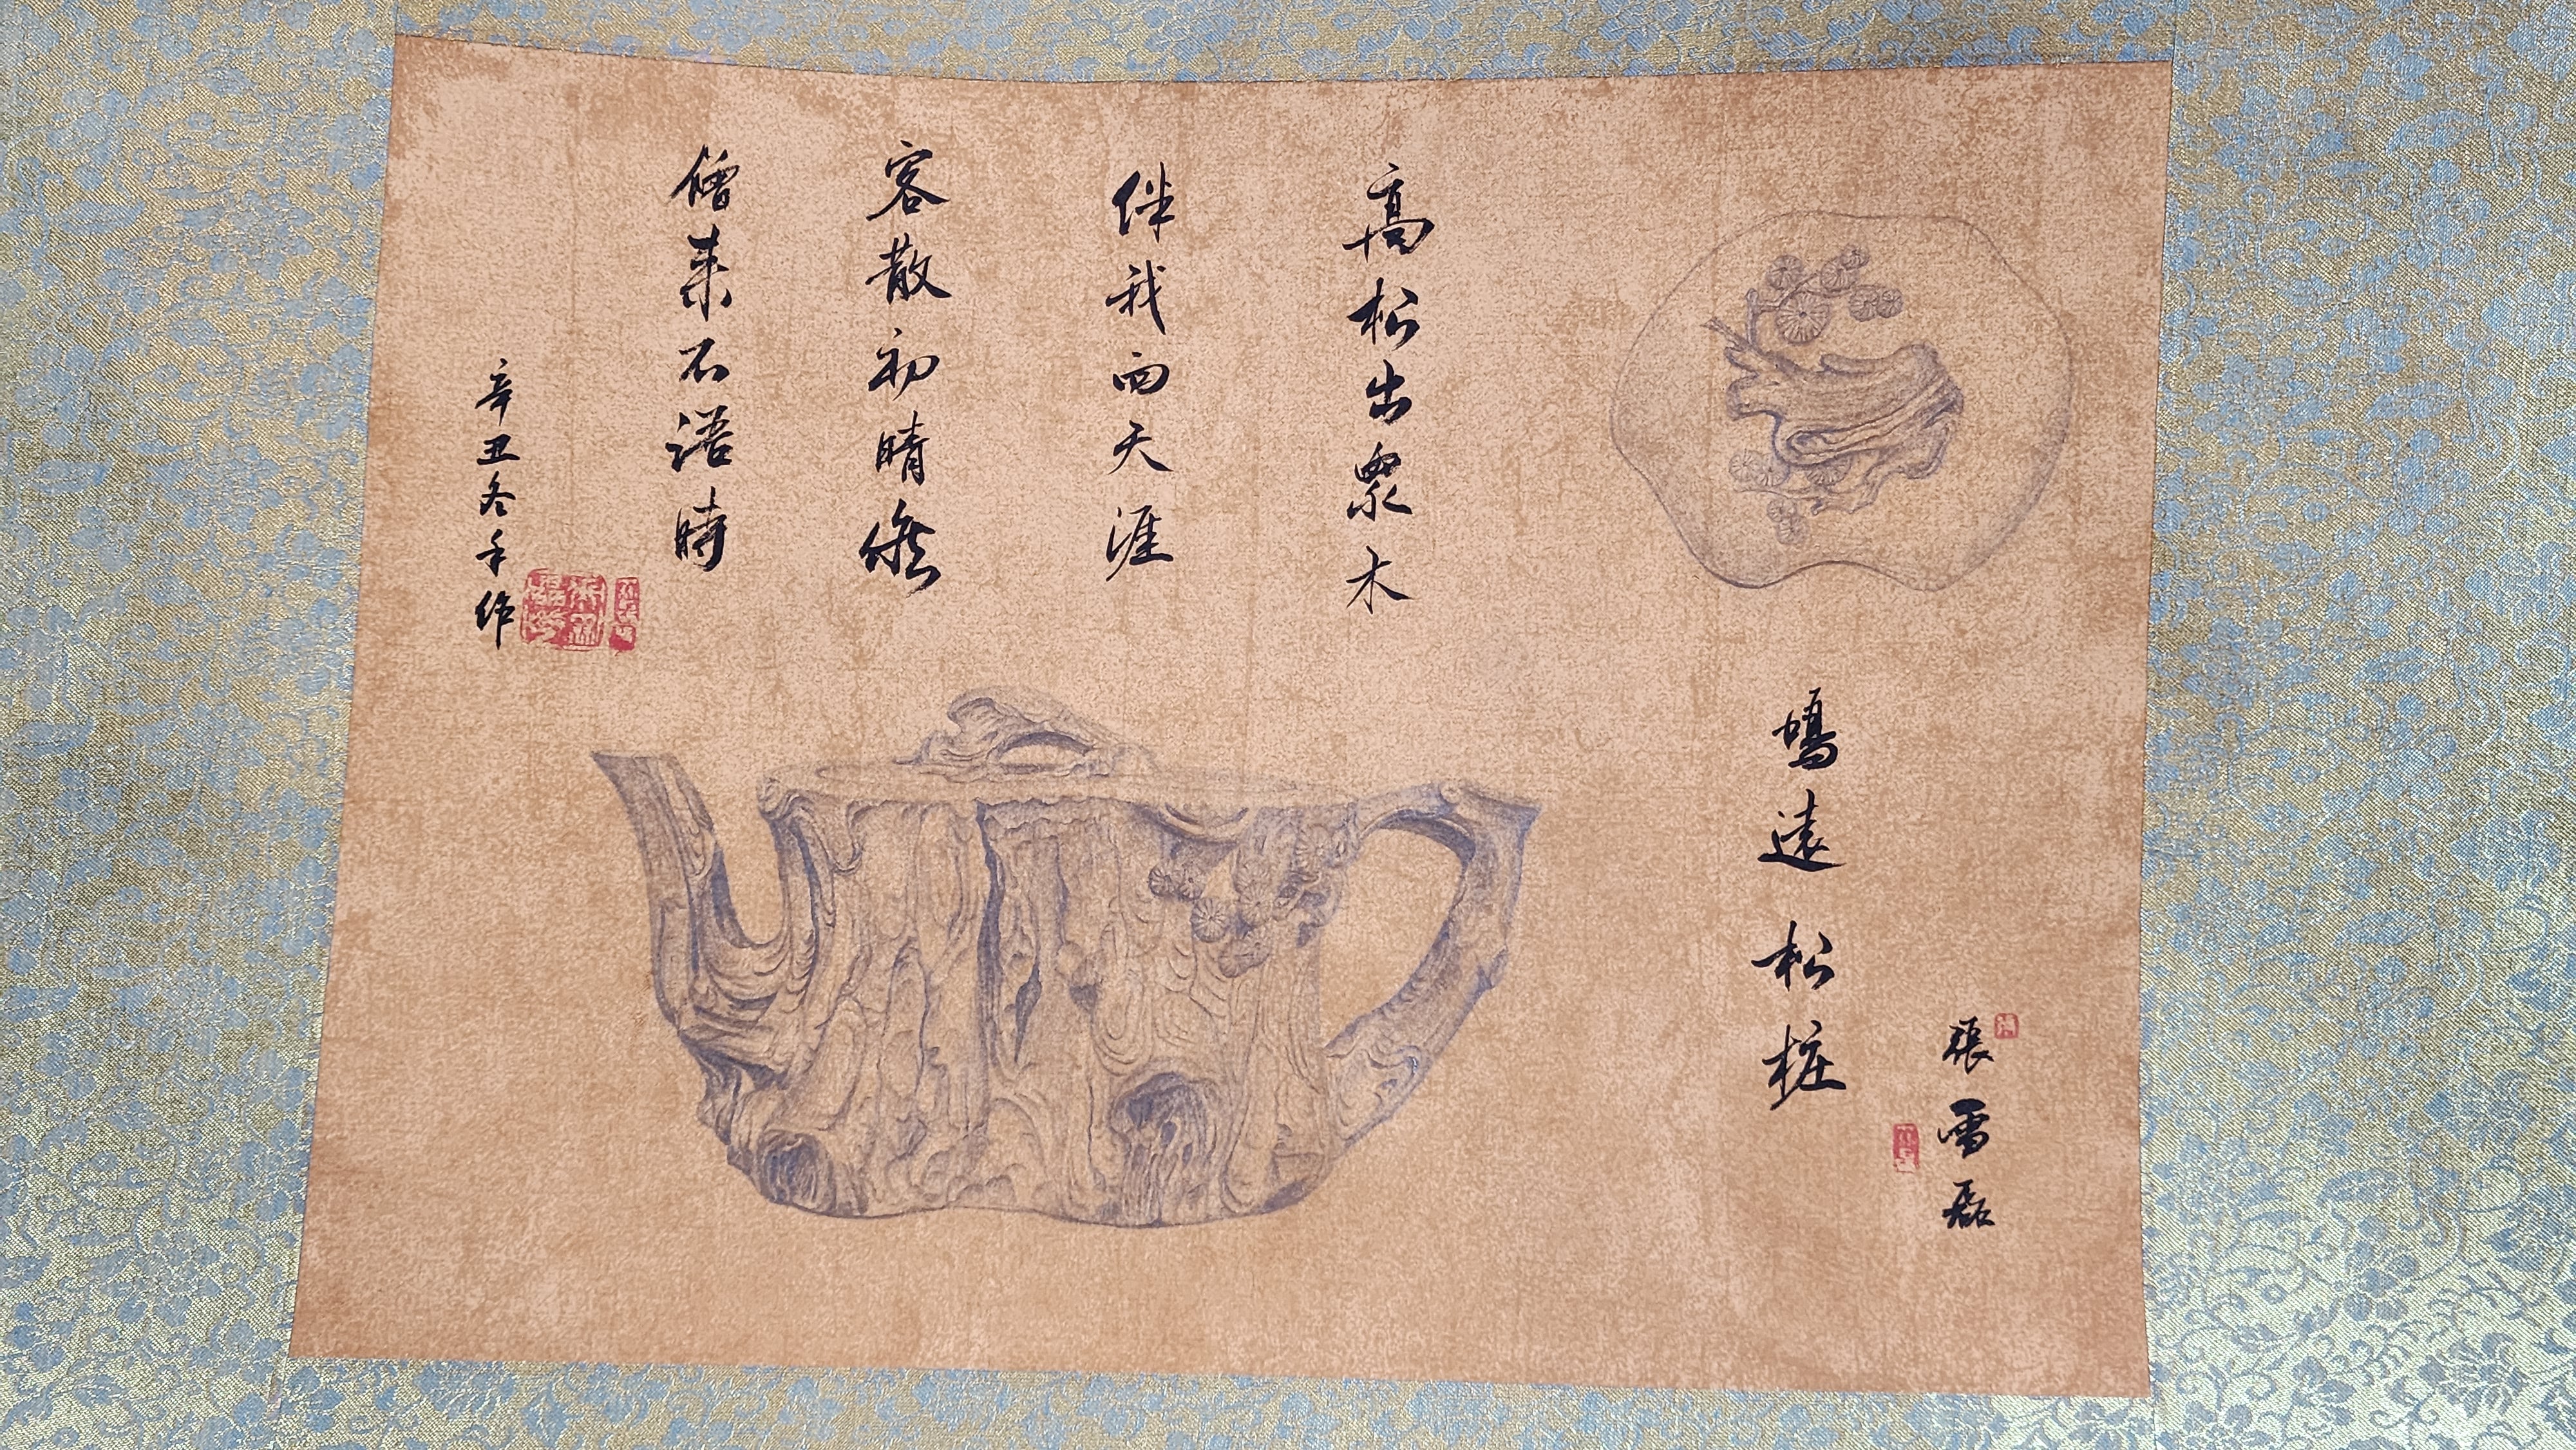 張雪磊
鳴遠 松桩
高松出眾木
伴我向天涯
客散初晴候
僧来不語時
辛丑冬手作